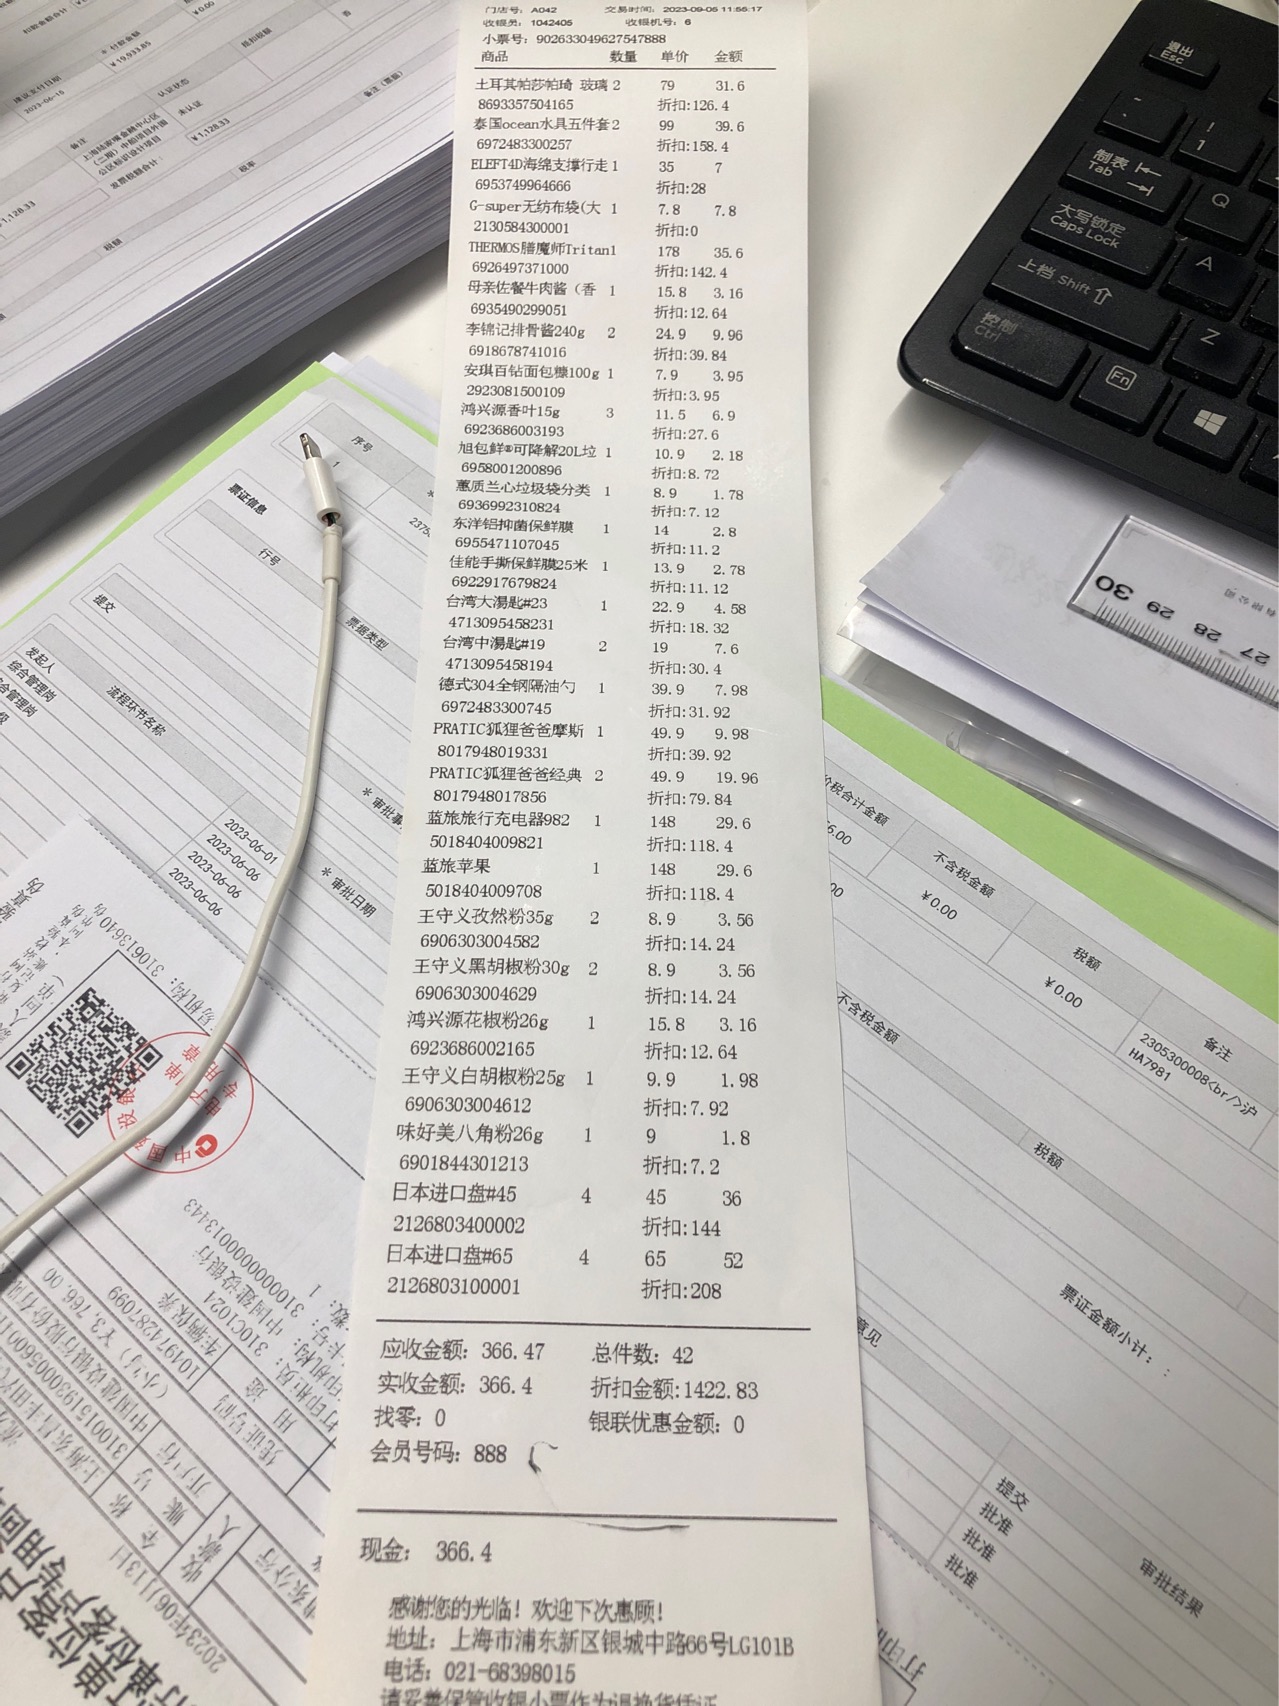 门店号: A042 交易时间: 2023-09-05 11:55:17
收银员: 1042405 收银机号: 6
小票号: 902633049627547888
商品 数量 单价 金额
土耳其帕莎帕琦 玻璃 2 79 31.6
8693357504165 折扣:126.4
泰国ocean水具五件套 2 99 39.6
6972483300257 折扣:158.4
ELEFT4D海绵支撑行走 1 35 7
6953749964666 折扣:28
G-super无纺布袋(大 1 7.8 7.8
2130584300001 折扣:0
THERMOS膳魔师Tritan1 178 35.6
6926497371000 折扣:142.4
母亲佐餐牛肉酱（香 1 15.8 3.16
6935490299051 折扣:12.64
李锦记排骨酱240g 2 24.9 9.96
6918678741016 折扣:39.84
安琪百钻面包糠100g 1 7.9 3.95
2923081500109 折扣:3.95
鸿兴源香叶15g 3 11.5 6.9
6923686003193 折扣:27.6
旭包鲜®可降解20L垃 1 10.9 2.18
6958001200896 折扣:8.72
蕙质兰心垃圾袋分类 1 8.9 1.78
6936992310824 折扣:7.12
东洋铝抑菌保鲜膜 1 14 2.8
6955471107045 折扣:11.2
佳能手撕保鲜膜25米 1 13.9 2.78
6922917679824 折扣:11.12
台湾大湯匙#23 1 22.9 4.58
4713095458231 折扣:18.32
台湾中湯匙#19 2 19 7.6
4713095458194 折扣:30.4
德式304全钢隔油勺 1 39.9 7.98
6972483300745 折扣:31.92
PRATIC狐狸爸爸摩斯 1 49.9 9.98
8017948019331 折扣:39.92
PRATIC狐狸爸爸经典 2 49.9 19.96
8017948017856 折扣:79.84
蓝旅旅行充电器982 1 148 29.6
5018404009821 折扣:118.4
蓝旅苹果 1 148 29.6
5018404009708 折扣:118.4
王守义孜然粉35g 2 8.9 3.56
6906303004582 折扣:14.24
王守义黑胡椒粉30g 2 8.9 3.56
6906303004629 折扣:14.24
鸿兴源花椒粉26g 1 15.8 3.16
6923686002165 折扣:12.64
王守义白胡椒粉25g 1 9.9 1.98
6906303004612 折扣:7.92
味好美八角粉26g 1 9 1.8
6901844301213 折扣:7.2
日本进口盘#45 4 45 36
2126803400002 折扣:144
日本进口盘#65 4 65 52
2126803100001 折扣:208
应收金额: 366.47 总件数: 42
实收金额: 366.4 折扣金额:1422.83
找零: 0 银联优惠金额: 0
会员号码: 888
现金: 366.4
感谢您的光临! 欢迎下次惠顾!
地址: 上海市浦东新区银城中路66号LG101B
电话: 021-68398015
请妥善保管收银小票作为退换货凭证
* 付款金额
¥19,933.85
抵扣税额
¥0.00
否
建议支付日期
2023-06-15
认证状态
未认证
备注
上海陆家嘴金融中心区
（二期）中船项目外围
公区标识设计项目
发票税额合计:
¥1,128.33
备注（票据）
税率
税额
序号
1
票证信息
行号
票据类型
提交
发起人
综合管理岗
流程环节名称
2023-06-01
2023-06-06
2023-06-06
2023-06-06
* 审批日期
价税合计金额
不含税金额
¥0.00
税额
¥0.00
备注
2305300008<br/>沪
HA7981
不含税金额
税额
票证金额小计:
意见
提交
批准
批准
批准
审批结果
打印
中国建设银行
电子回单
专用章
310613640
3100000000013443
中国建设银行
310C1021
车辆保养
104974287099
¥3,766.00
用途
凭证号码
开户行
账号
全称
收款人
2023年06月13日
退出
Esc
!
1
制表
Tab
Q
大写锁定
Caps Lock
A
上档 Shift
Z
控制
Ctrl
Fn
30 29 28 27